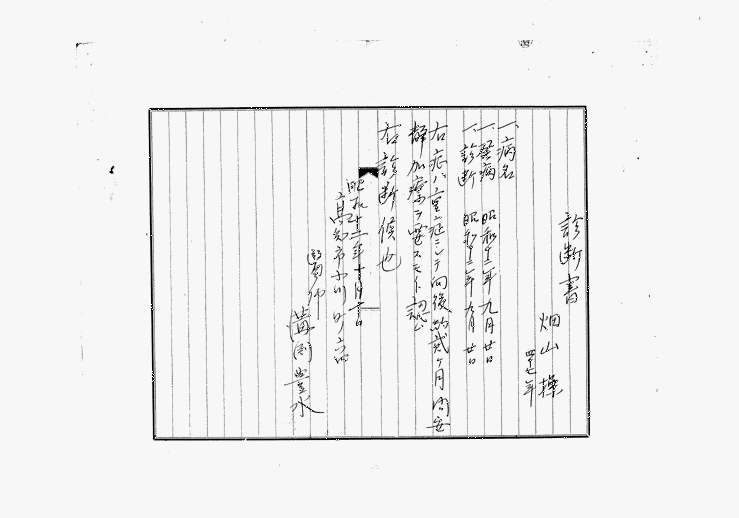 診断書
畑山操
四十七年
一、病名
一、発病 昭和十二年九月廿日
一、診断 昭和十二年九月廿日
右症ハ重症ニシテ向後約弐ヶ月間安
静加療ヲ要スモノト認ム
右診断候也
昭和十二年十月
高知市小川町
醫師